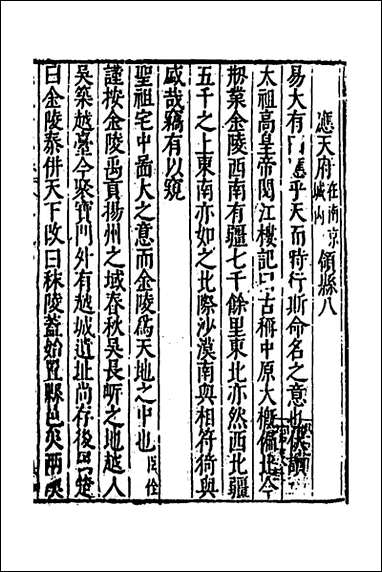 應天府在南京城內領縣八
易大有曰應乎天而時行斯命名之意也伏讀
太祖高皇帝閱江樓記曰古稱中原大槪偏北今
剏業金陵西南有疆七千餘里東北亦然西北疆
五千之上東南亦如之北際沙漠南與相符倚與
盛哉竊有以窺
聖祖宅中啚大之意而金陵爲天地之中也臣佺
謹按金陵禹貢揚州之域春秋吳長岸之地越人
吳築越臺今聚寶門外有越城遺址尚存後曰楚
曰金陵秦併天下改曰秣陵蓋始置縣邑矣兩漢